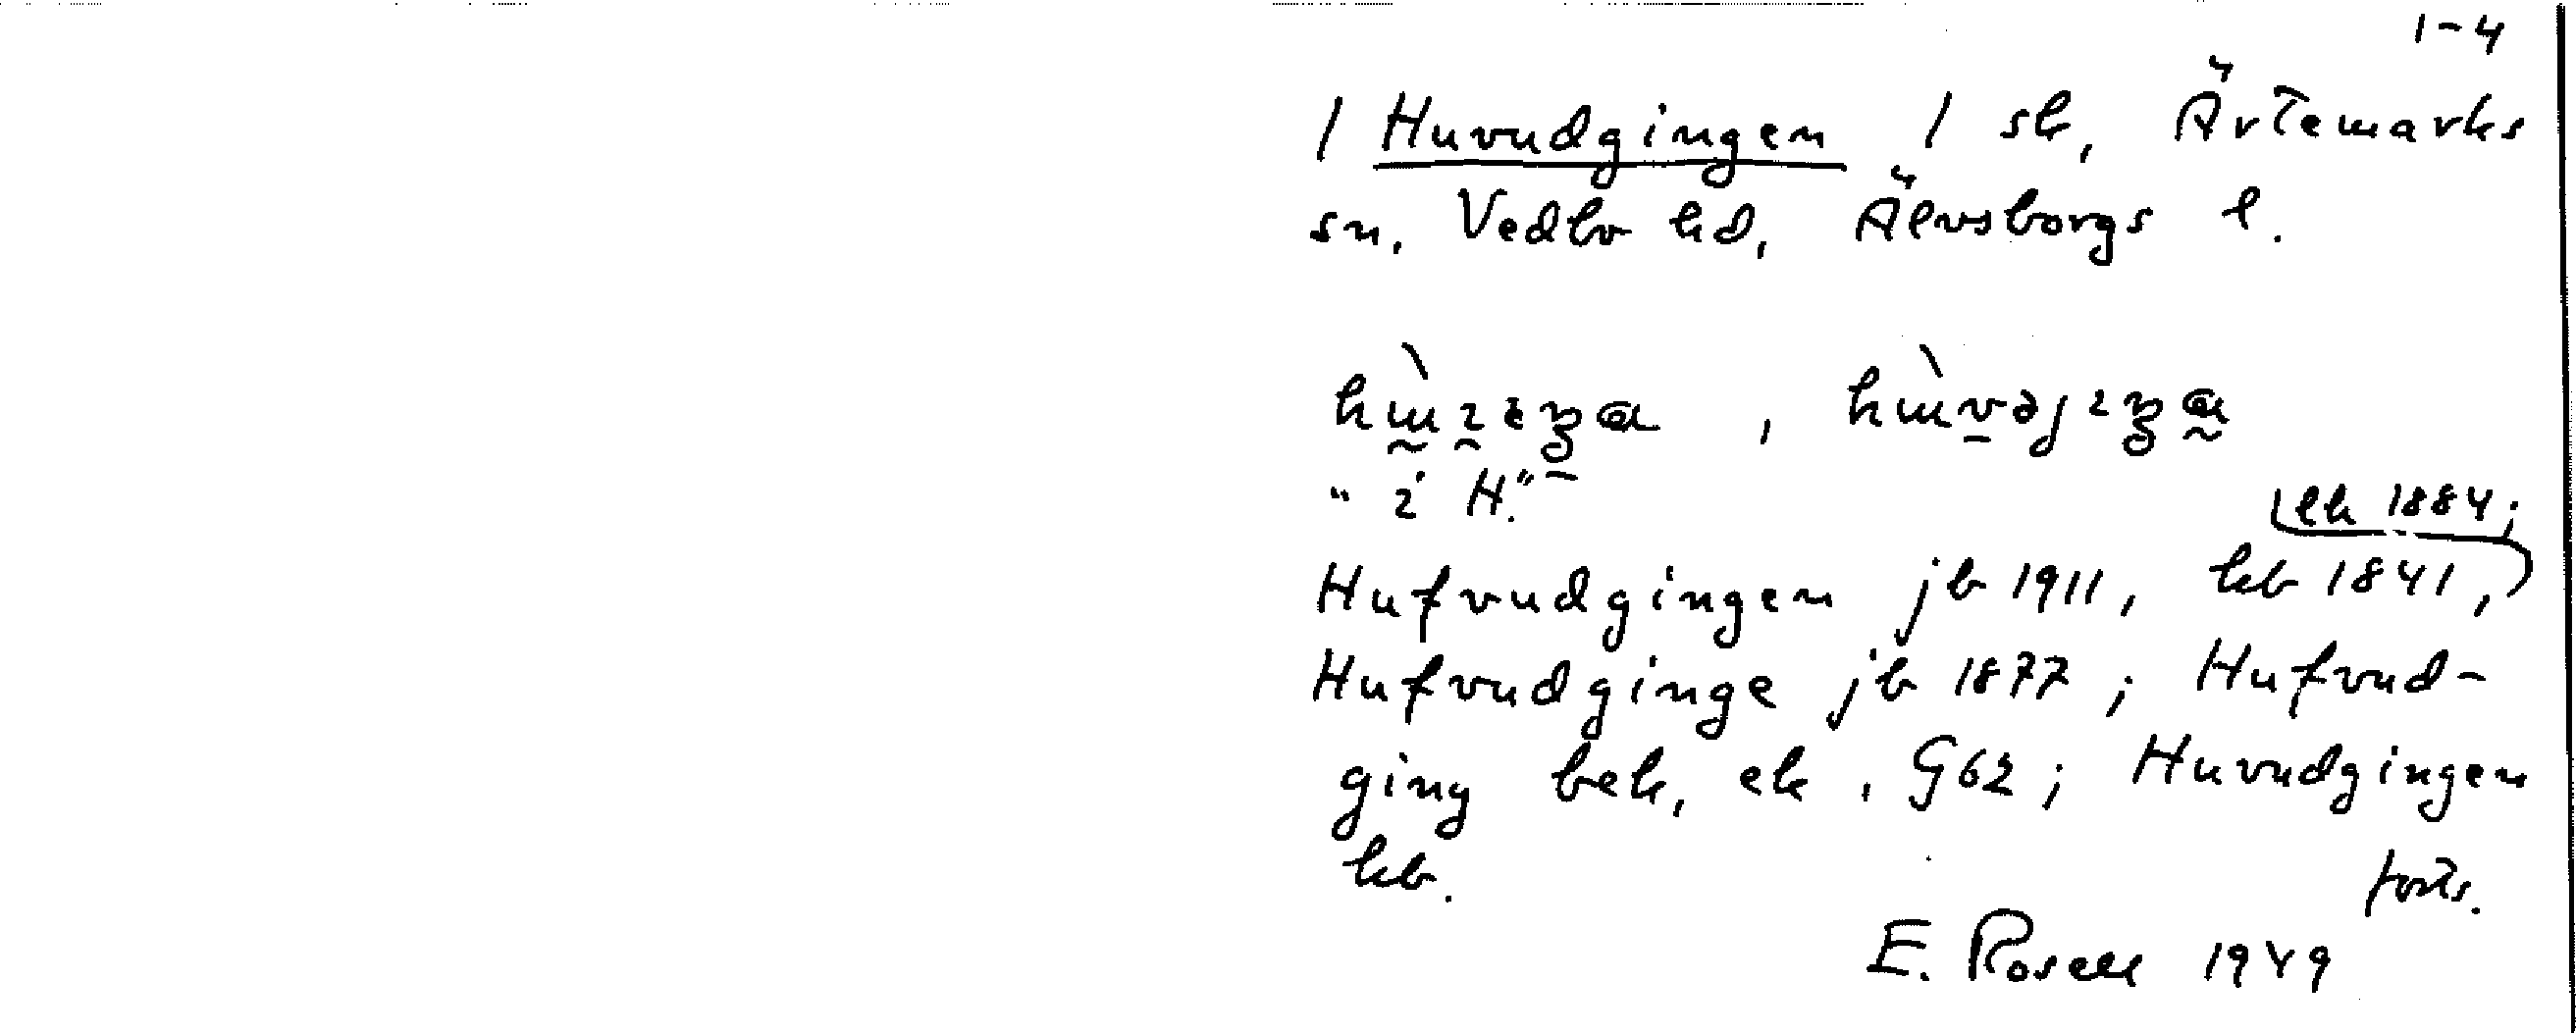 1-4
/ Huvudgingen / sk, Ärtemarks
sn. Vedbo hd, Älvsborgs l.
" i H."
lk 1884;
Hufvudgingen jb 1911, kb 1841,
Hufvudginge jb 1877; Hufvud-
ging bek, ek, G62; Huvudgingen
kb.
forts.
E. Rosell 1949